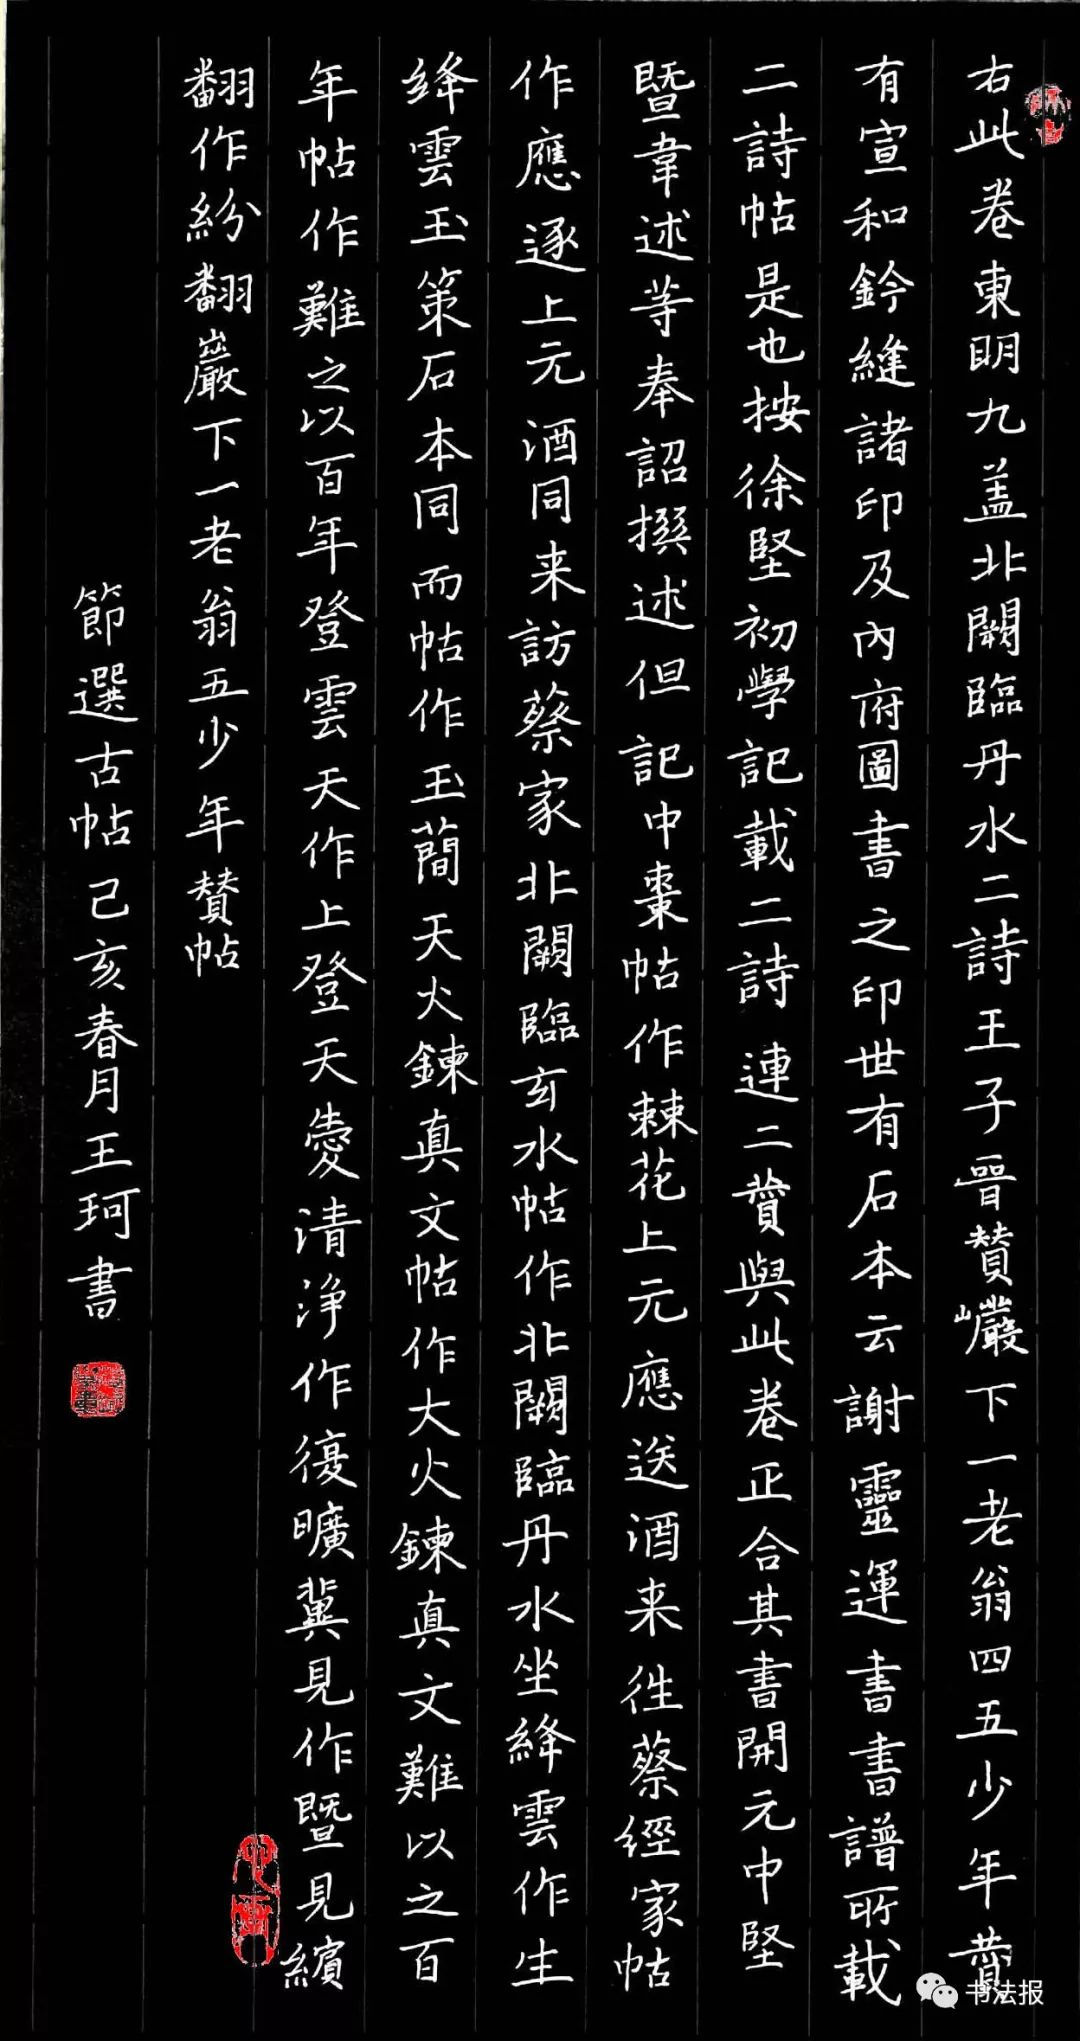 右此卷東明九盖北闕臨丹水二詩王子晉贊巖下一老翁四五少年贊
有宣和鈐縫諸印及內府圖書之印世有石本云謝靈運書書譜所載
二詩帖是也按徐堅初學記載二詩連二贊與此卷正合其書開元中堅
暨韋述等奉詔撰述但記中棗帖作棘花上元應送酒来往蔡經家帖
作應逐上元酒同来訪蔡家北闕臨玄水帖作北闕臨丹水坐絳雲作生
絳雲玉策石本同而帖作玉蕳天火鍊真文帖作大火鍊真文難以之百
年帖作難之以百年登雲天作上登天愛清净作復曠冀見作暨見繽
翻作紛翻巖下一老翁五少年贊帖
節選古帖己亥春月王珂書
书法报